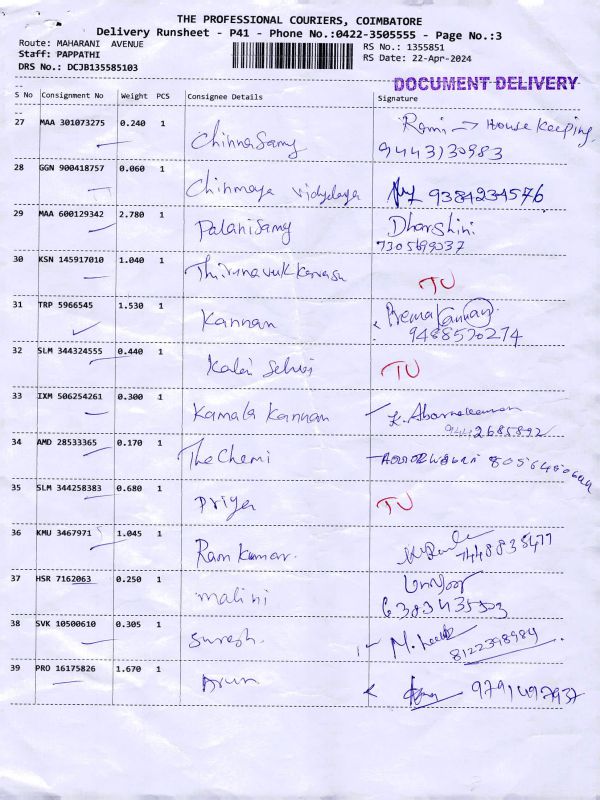 THE PROFESSIONAL COURIERS, COIMBATORE
Delivery Runsheet - P41 - Phone No.:0422-3505555 - Page No.:3
Route: MAHARANI AVENUE
RS No.: 1355851
Staff: PAPPATHI
RS Date: 22-Apr-2024
DRS No.: DCJB135585103
DOCUMENT DELIVERY
S No Consignment No Weight PCS Consignee Details Signature
27 MAA 301073275 0.240 1 Chinnasamy Rami → House keeping.
9443130983
28 GGN 900418757 0.060 1 Chinmaya vidyalaya 9384234576
29 MAA 600129342 2.780 1 Palanisamy Dharshini
7305699037
30 KSN 145917010 1.040 1 TU
31 TRP 5966545 1.530 1 Kannan Prema Kannan
9488570274
32 SLM 344324555 0.440 1 Kalai Selvi TU
33 IXM 506254261 0.300 1 Kamala Kannan
2685892
34 AMD 28533365 0.170 1 The Chemi
35 SLM 344258383 0.680 1 Priya TU
36 KMU 3467971 1.045 1 Ram Kumar. 7448835477
37 HSR 7162063 0.250 1 malini
6383435503
38 SVK 10500610 0.305 1 Suresh.
8122398984
39 PRO 16175826 1.670 1 Arun 9791497937